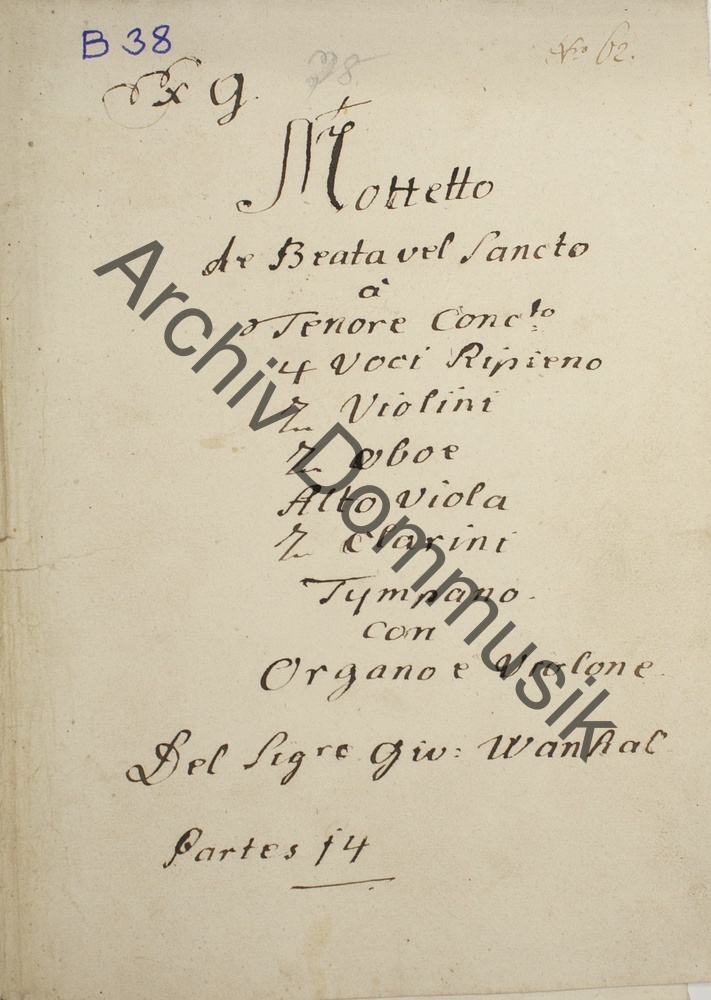 B 38
Nro 62.
38
Ex G.
Mottetto
de Beata vel Sancto
à
Tenore Conc:to
4 Voci Ripieno
2 Violini
2 Oboe
Alto Viola
2 Clarini
Tympano.
con
Organo e Violone.
Del Sigre Giv: Wanhal
Partes 14
Archiv Dommusik